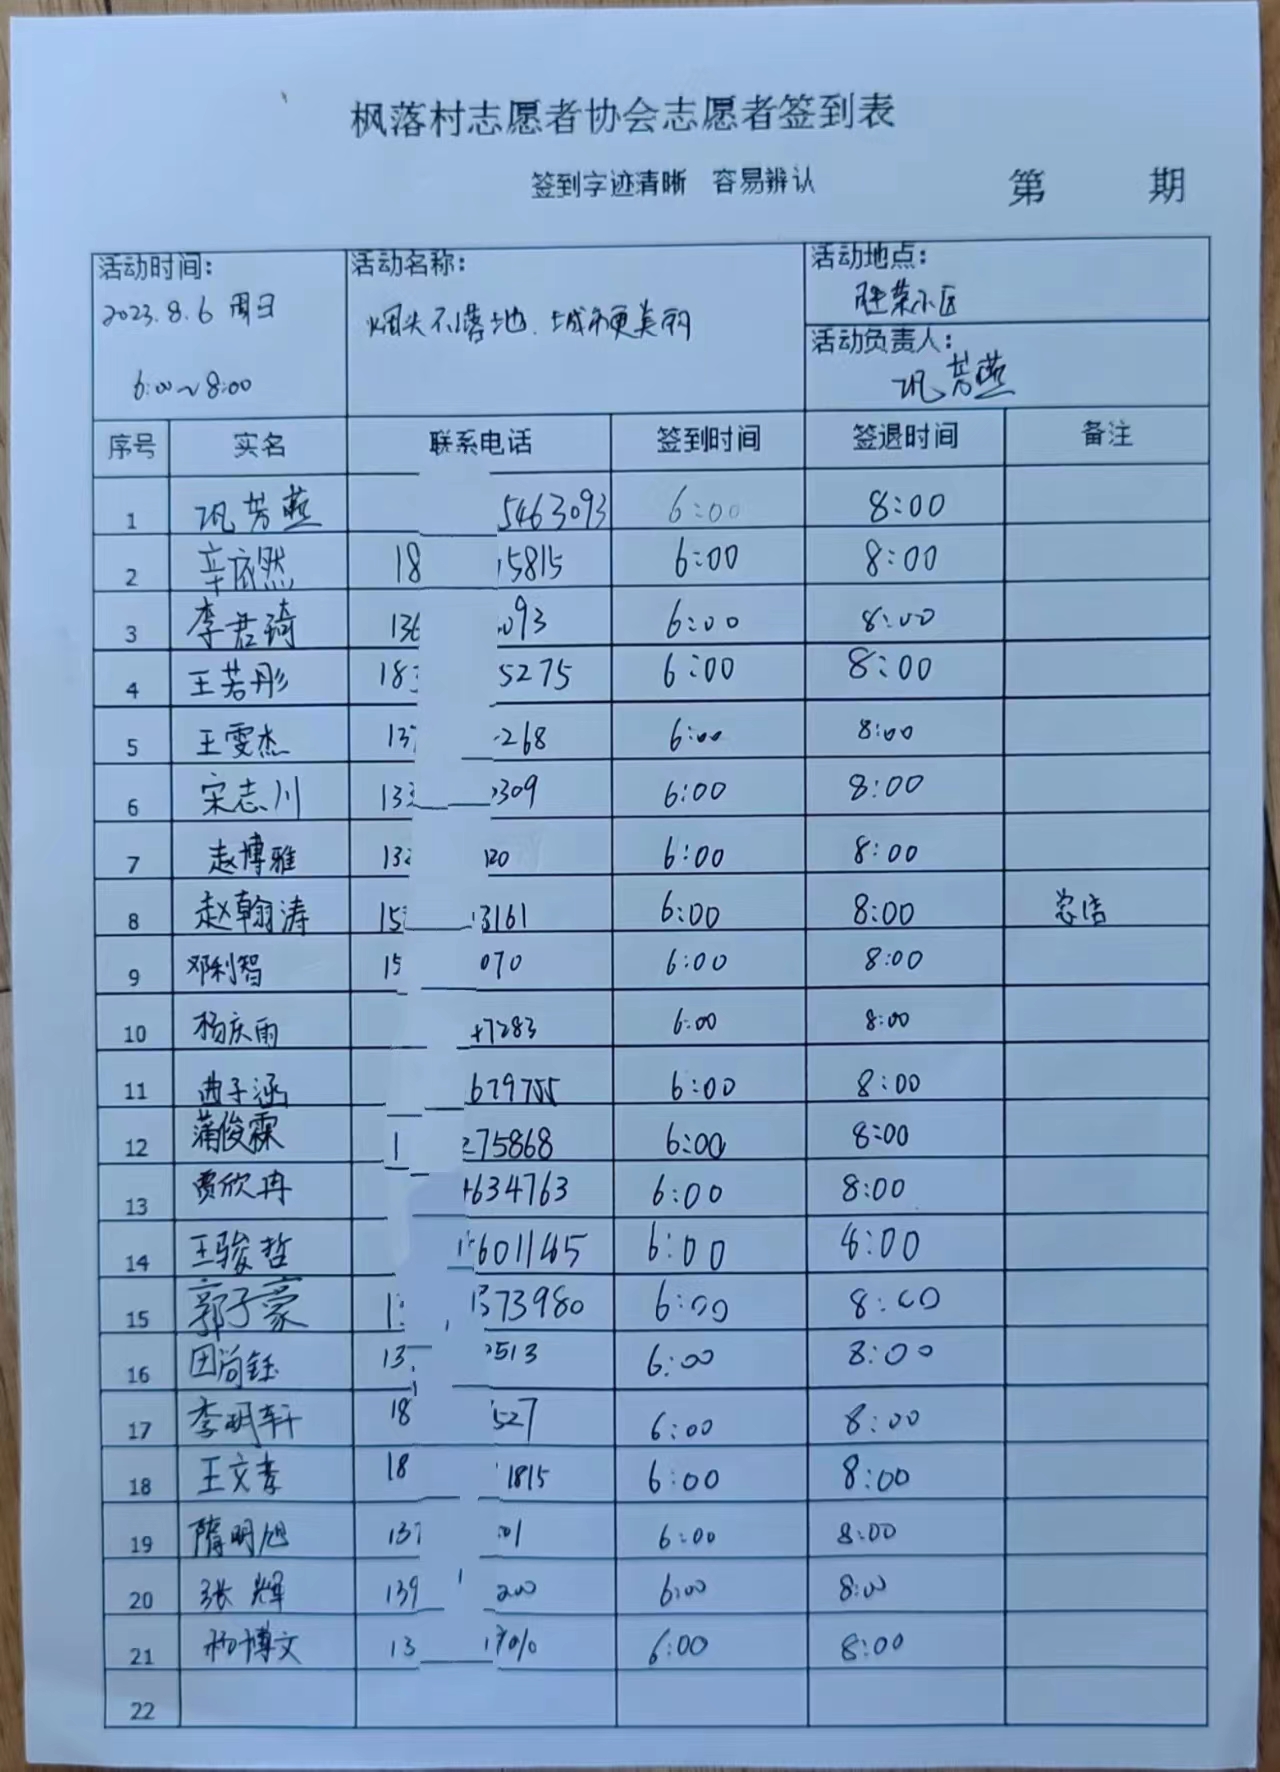 枫落村志愿者协会志愿者签到表
签到字迹清晰 容易辨认 第 期
活动时间: 活动名称: 活动地点:
2023.8.6 周日 烟头不落地、城市更美丽 荣小区
6:00~8:00 活动负责人: 巩芳燕
序号 实名 联系电话 签到时间 签退时间 备注
1 巩芳燕 5463093 6:00 8:00
2 辛依然 18 5815 6:00 8:00
3 李君琦 136 093 6:00 8:00
4 王若彤 183 5275 6:00 8:00
5 王雯杰 137 268 6:00 8:00
6 宋志川 133 309 6:00 8:00
7 赵博雅 132 120 6:00 8:00
8 赵翰涛 15 3161 6:00 8:00 总结
9 邓利智 15 070 6:00 8:00
10 杨庆雨 7283 6:00 8:00
11 曲子涵 679755 6:00 8:00
12 蒲俊霖 1 275868 6:00 8:00
13 贾欣冉 634763 6:00 8:00
14 王骏哲 601145 6:00 8:00
15 郭子豪 1 1373980 6:00 8:00
16 田尚钰 13 513 6:00 8:00
17 李明轩 18 527 6:00 8:00
18 王文孝 18 1815 6:00 8:00
19 隋明旭 137 01 6:00 8:00
20 张辉 139 200 6:00 8:00
21 杨博文 13 6:00 8:00
22